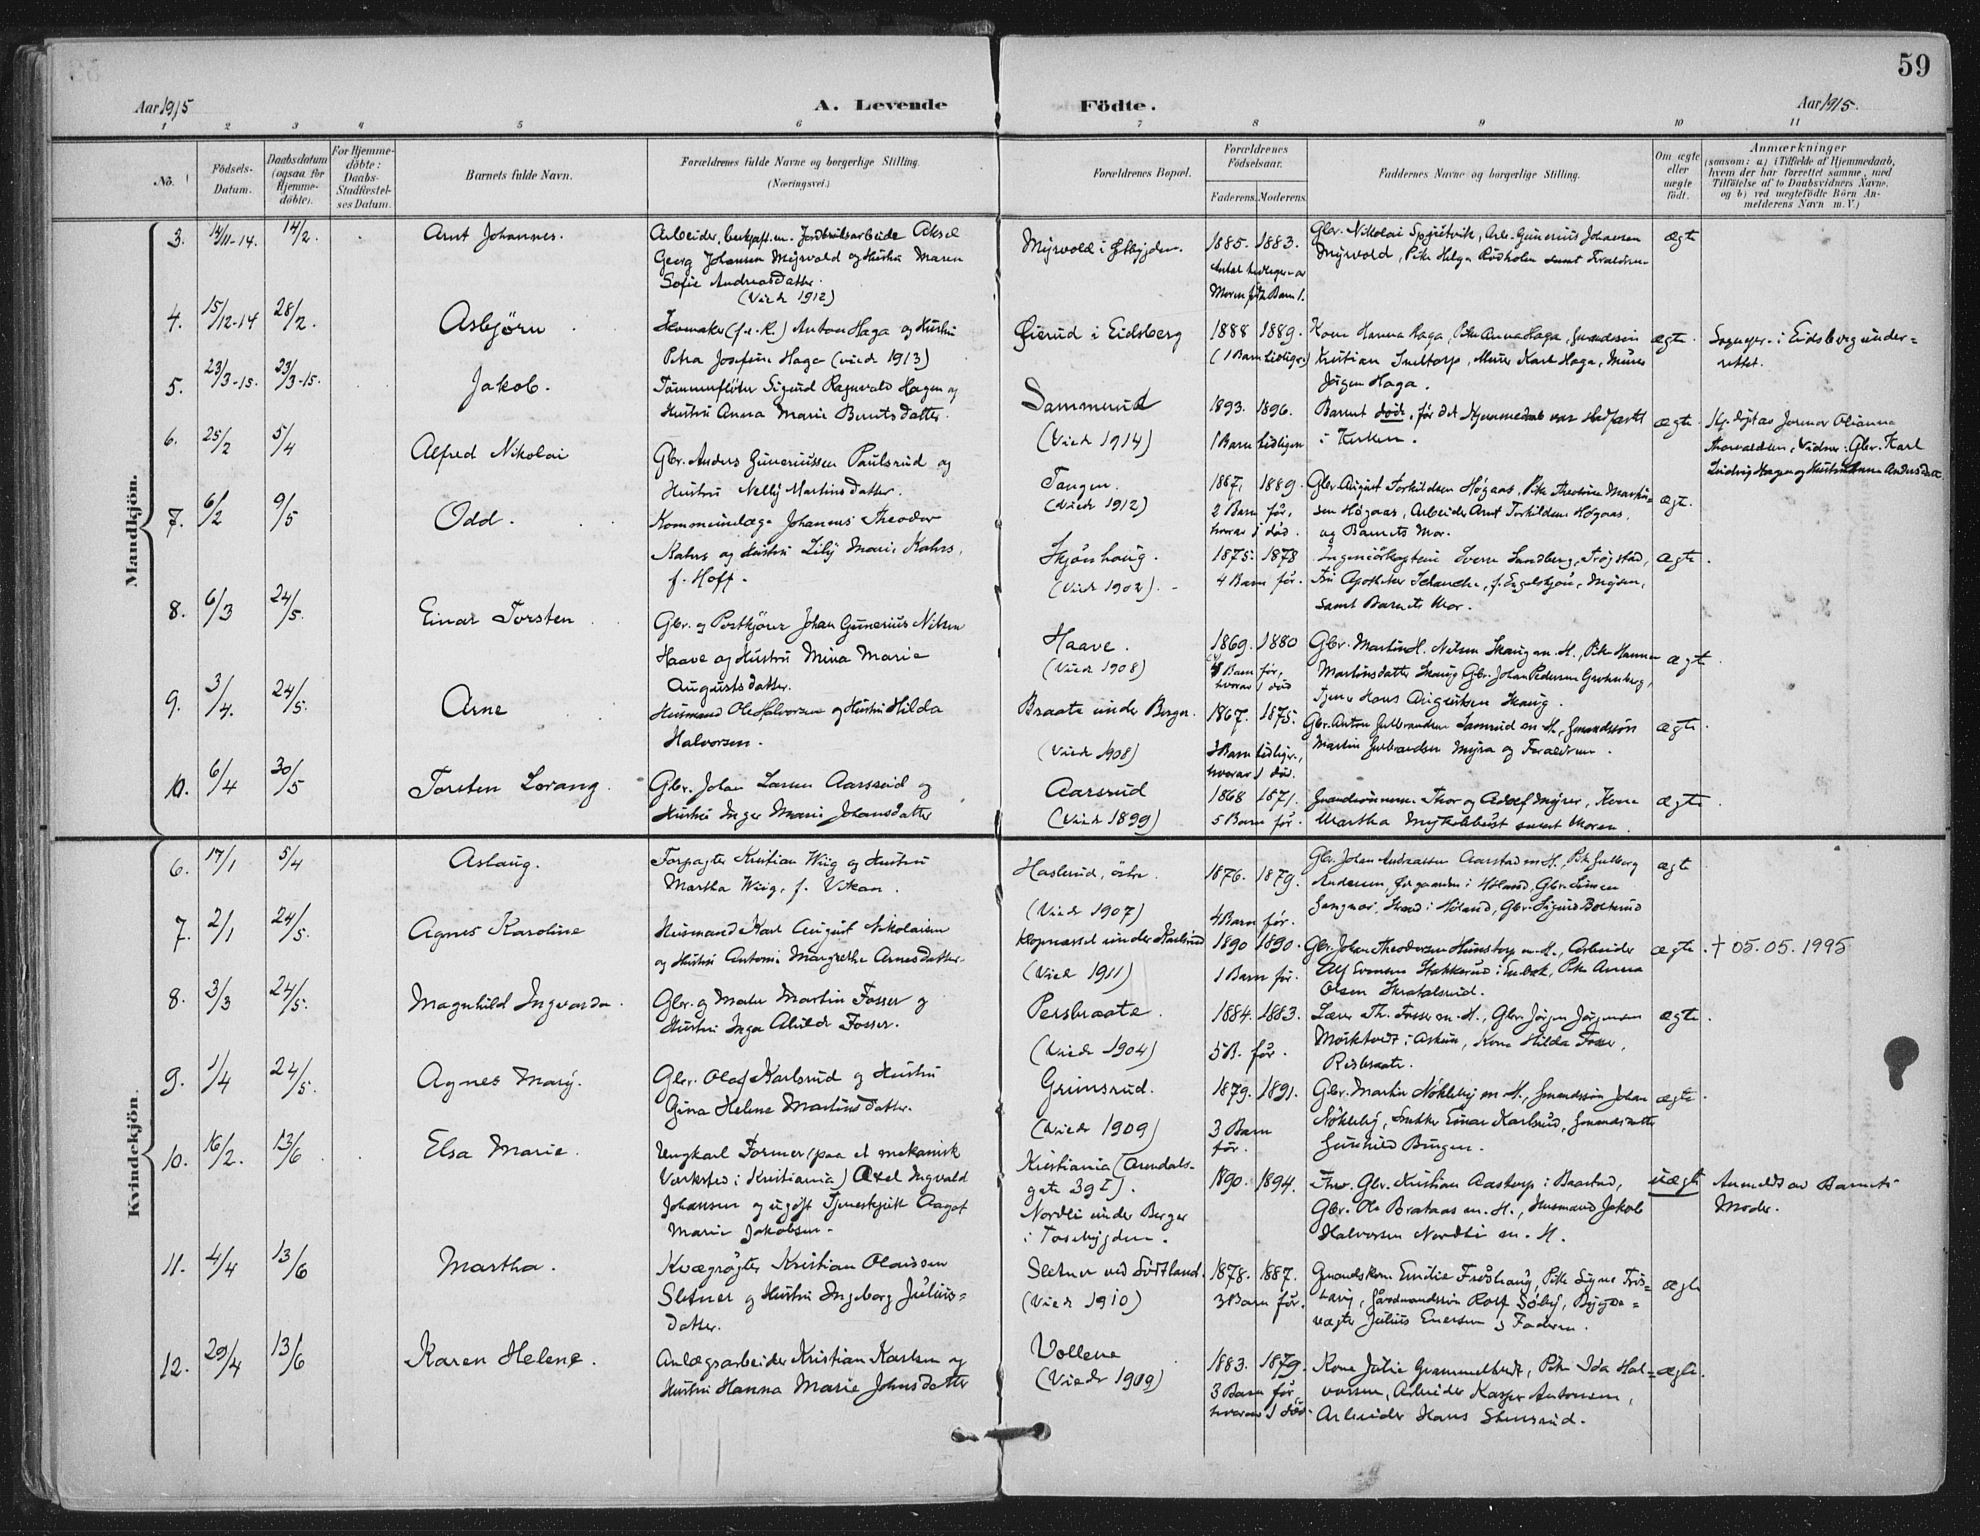 59
Aar 1915
A. Levende
Födte.
Aar 1915.
1 2 3 4 5 6 7 8 9 10 11
No.
Födsels-
Datum.
Daabsdatum
(ogsaa for
Hjemme-
döbte).
For Hjemme-
döbte:
Daabs-
Stadfæstel-
ses Datum.
Barnets fulde Navn.
Forældrenes fulde Navne og borgerlige Stilling.
(Næringsvei.)
Forældrenes Bopæl.
Forældrenes
Födselsaar.
Faderens.
Moderens.
Faddernes Navne og borgerlige Stilling.
Om ægte
eller
uægte
födt.
Anmærkninger
(saasom: a) i Tilfælde af Hjemmedaab,
hvem der har forrettet samme, med
Tilföielse af to Daabsvidners Navne,
og b) ved uægtefödte Börn An-
melderens Navn m. V.)
Mandkjön.
3. 14/11-14. 14/2. Arnt Johannes.
Georg Johansen Myrvold og Hustru Maren
Sofie Andreasdatter.
(Viet 1912)
1885. 1883.
Myrvold, Pike Helga samt Foreldrene
ægte
4. 15/12-14 28/2. Asbjørn
Anton Haga og Hustru
Petra Josefine Haga (viet 1913)
i Eidsberg
1888 1889.
(1 Barn tidligere)
Kone Hanna Haga, Pike Anna Haga,
Kristian Murer Karl Haga, Murer
Jørgen Haga.
ægte.
i Eidsberg under-
rettet.
5. 23/3-15. 23/3-15. Jakob.
Tømmerfløter Sigurd Ragnvald Hagen og
Hustru Anna Marie Berntsdatter.
Sammerud
(Viet 1914)
1893. 1896.
1 Barn tidligere
Barnet døde, før det
i Kirken.
ægte.
Hj. døpt av Jormor Olianna
Thorvaldsen, Vidner: Gbr. Karl
Ludvig Hagen og Hustru Anna Andersdatter
6. 25/2 5/4 Alfred Nikolai
Gbr. Anders Guneriussen Paulsrud og
Hustru Nelly Martinsdatter.
Tangen.
(Viet 1912)
1867. 1889.
2 Barn før,
hvorav 1 død.
Gbr. August Torkildsen Høgaas, Pike
sen Høgaas, Arbeider Arnt Torkildsen Høgaas,
og Barnets Mor.
ægte.
7. 6/2 9/5 Odd.
Kommunelæge Johannes Theodor
Kahrs og Hustru Lily Marie Kahrs,
f. Hoff.
Skjønhaug.
(Viet 1902).
1875. 1878
4 Barn før.
Sverre Sandberg, Trøgstad,
Fru Apotheker f. Engelskjøn, Mysen,
samt Barnets Mor.
ægte.
8. 6/3 24/5. Einar Torsten
Gbr. og Postkjører Johan Gunerius Nilsen
Haave og Hustru Mina Marie
Augustsdatter.
Haave.
(Viet 1908)
1869. 1880
4 Barn før,
hvorav 1 død
Gbr. Martin H. Nilsen Skaug m. H., Pike Hanna
Martinsdatter Skaug, Gbr. Johan Pedersen
Hans Skaug.
ægte.
9. 3/4. 24/5. Arne
Husmand Ole Halvorsen og Hustru Hilda
Halvorsen.
Braate under Berger.
(Viet 1908)
1867. 1875.
3 Barn tidligere,
hvorav 1 død.
Gbr. Anton Gulbrandsen Samrud m H.,
Martin Gulbrandsen Myra og Foreldrene.
ægte.
10. 6/4 30/5 Torsten Lorang.
Gbr. Johan Larsen Aarsrud og
Hustru Inger Marie Johansdatter
Aarsrud
(Viet 1899)
1868 1871.
5 Barn før.
Thor og Adolf Myrer, Kone
Martha samt Moren.
ægte.
Kvindekjön.
6. 17/1 5/4 Aslaug.
Forpagter Kristian Wiig og Hustru
Martha Wiig, f. Vikan.
Haslerud, østre.
(Viet 1907)
1876. 1879.
4 Barn før.
Gbr. Johan Andreassen Aarstad m H., Pike Gulborg
Andersen, i Høland, Gbr. Simen
i Høland, Gbr. Sigurd
ægte
7. 2/1 24/5. Agnes Karoline
Husmand Karl August Nikolaisen
og Hustru Antonie Margrethe Arnesdatter.
under Karlsrud
(Viet 1911)
1890 1890.
1 Barn før.
Gbr. Johan Theodorsen m. H., Arbeider
Alf Evensen Stakkerud i Enebak, Pike Anna
Olsen
ægte.
† 05.05.1995
8. 3/3 24/5. Magnhild Ingvarda.
Gbr. og Maler Martin Fosser og
Hustru Inga Alvilde Fosser.
Persbraate.
(Viet 1904)
1884. 1883.
5 B. før.
Lærer Th. Fosser m. H., Gbr. Jørgen Jørgensen
Mørktvedt i Askim, Kone Hilda Fosser,
Risbraate.
ægte.
9. 1/4 24/5. Agnes Mary.
Gbr. Olaf Karlsrud og Hustru
Gina Helene Martinsdatter.
Grimsrud.
(Viet 1909)
1879. 1891.
3 Barn
før.
Gbr. Martin Nøkleby m H., Johan
Nøkleby, Snekker Einar Karlsrud,
Gunhild Bingen.
ægte.
10. 16/2. 13/6 Elsa Marie.
Ungkarl Former (paa et mekanisk
Verksted i Kristiania) Axel Ingvald
Johansen og ugift Tjenestepike Aagot
Marie Jakobsen.
Kristiania (Arendals-
gate 39 I).
Nordli under Berger
i Tosebygden.
1890. 1894.
Gbr. Kristian Aastorp i Baastad,
Gbr. Ole Brataas m. H., Husmand Jakob
Halvorsen Nordli m. H.
uægte
Anmeldt av Barnets
Moder.
11. 4/4 13/6 Martha.
Kvægrøgter Kristian Olaussen
Sletner og Hustru Ingeborg Julius-
datter.
Sletner ved
(Viet 1910)
1878. 1887.
3 Barn før.
Emilie Frøshaug, Pike Signe Frøs-
haug, Gaardmandssøn Rolf Søby, Bygde-
vægter Julius Enersen og Faderen.
ægte
12. 29/4 13/6 Karen Helene.
Anlægsarbeider Kristian Karlsen og
Hustru Hanna Marie Johnsdatter
Vollene
(Viet 1909)
1883. 1879.
3 Barn før,
hvorav 1 død.
Kone Julie Grammeltvedt, Pike Ida Hal-
vorsen, Arbeider Kasper Antonsen,
Arbeider Hans Stensrud.
ægte.